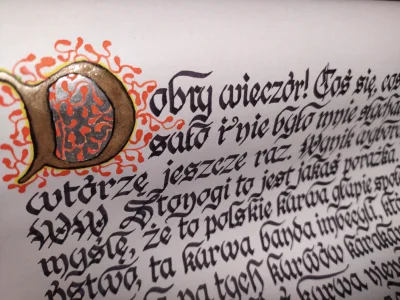 Dobry wieczór! Coś się, coś
sało i nie było mnie słychać
wtórzę jeszcze raz. Wynik wyboró
WW Stonogi to jest jakaś porażka.
myślę, że to polskie kurwa głupie społe
ństwo, ta kurwa banda imbecyli, któ
na tych kurwów karaka
kurwa nie